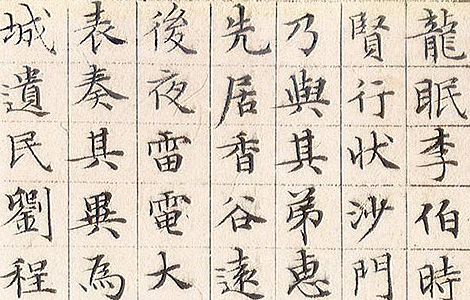 龍眠李伯時
賢行状沙門
乃與其弟惠
先居香谷遠
後夜雷電大
表奏其異為
城遺民劉程